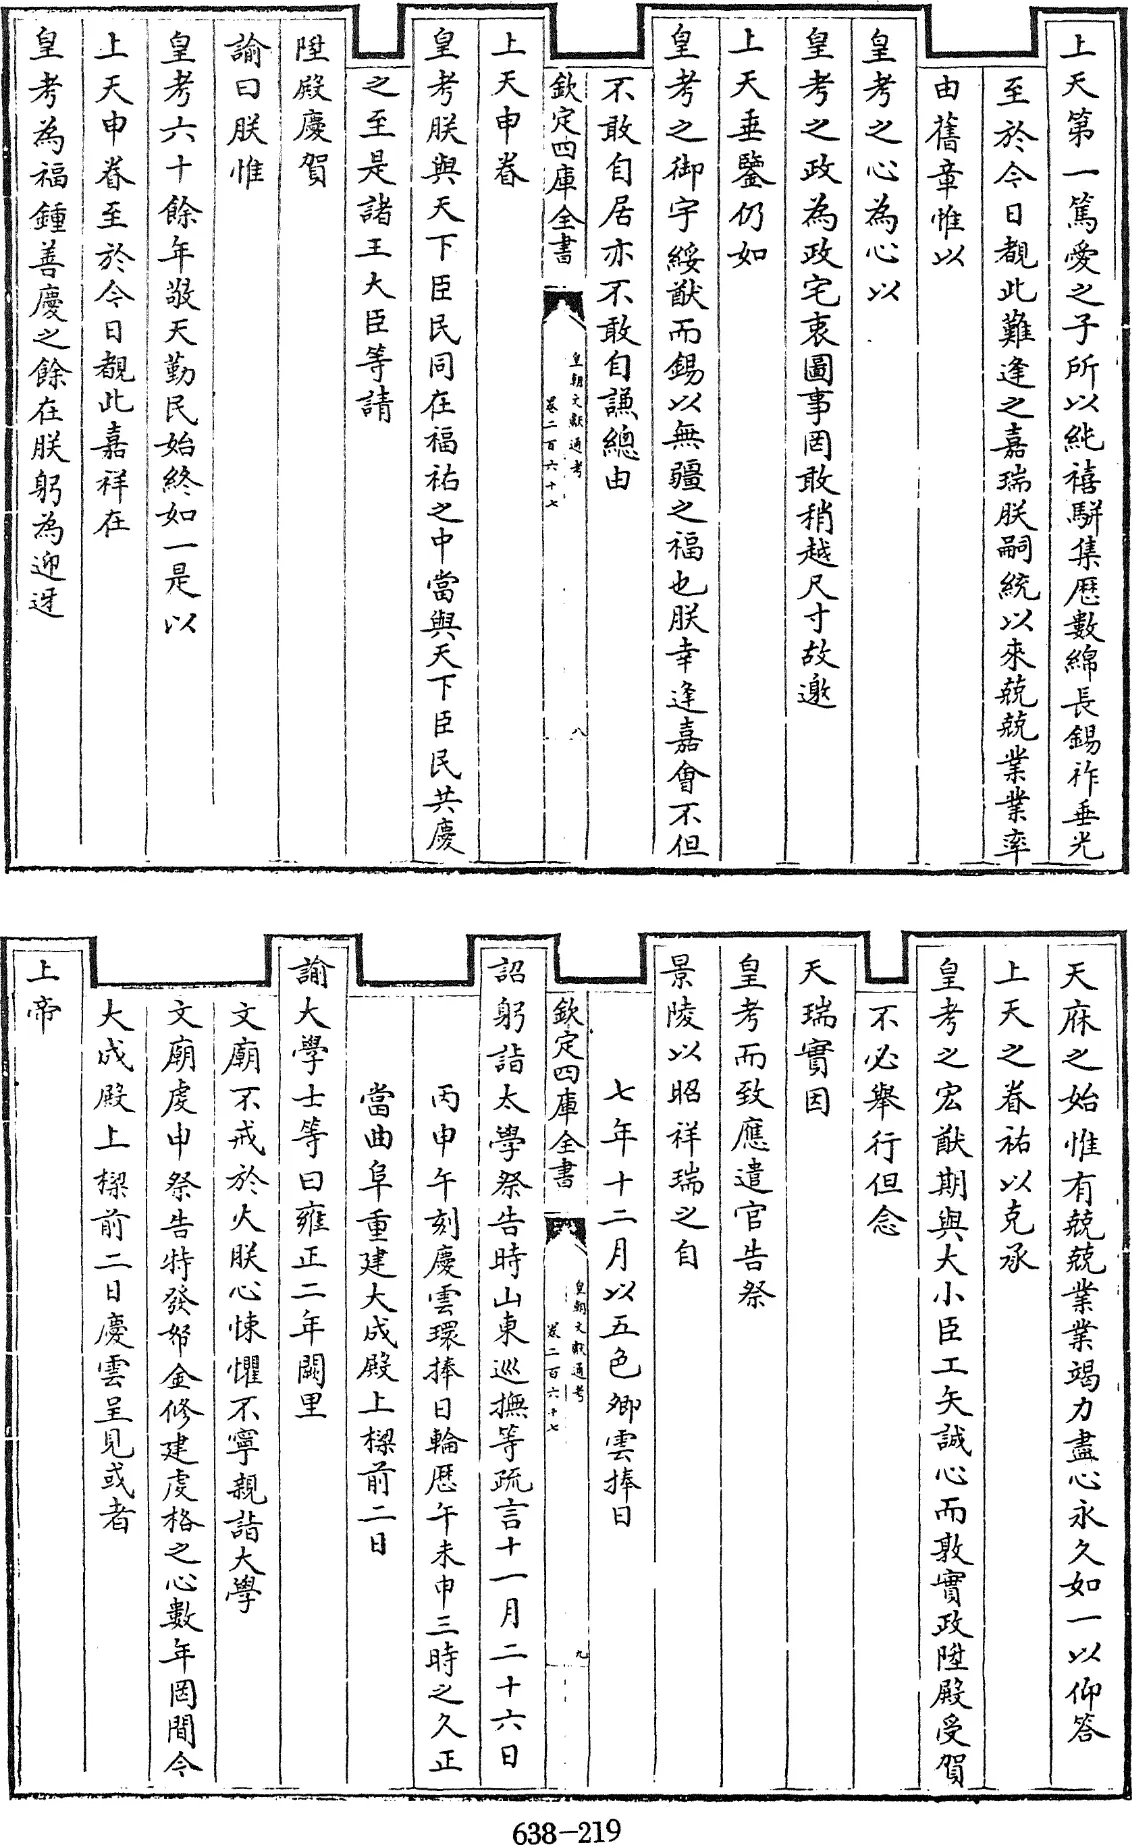 上天第一篤愛之子所以純禧駢集歷數綿長錫祚垂光
至於今日覩此難逢之嘉瑞朕嗣統以來兢兢業業率
由舊章惟以
皇考之心為心以
皇考之政為政宅衷圖事罔敢稍越尺寸故邀
上天垂鑒仍如
皇考之御宇綏猷而錫以無疆之福也朕幸逢嘉會不但
不敢自居亦不敢自謙總由
欽定四庫全書
皇朝文獻通考
卷二百六十七
八
上天申眷
皇考朕與天下臣民同在福祐之中當與天下臣民共慶
之至是諸王大臣等請
陞殿慶賀
諭曰朕惟
皇考六十餘年敬天勤民始終如一是以
上天申眷至於今日覩此嘉祥在
皇考為福鍾善慶之餘在朕躬為迎迓
天庥之始惟有兢兢業業竭力盡心永久如一以仰答
上天之眷祐以克承
皇考之宏猷期與大小臣工矢誠心而敦實政陞殿受賀
不必舉行但念
天瑞實因
皇考而致應遣官告祭
景陵以昭祥瑞之自
七年十二月以五色卿雲捧日
欽定四庫全書
皇朝文獻通考
卷二百六十七
九
詔躬詣太學祭告時山東巡撫等疏言十一月二十六日
丙申午刻慶雲環捧日輪歷午未申三時之久正
當曲阜重建大成殿上樑前二日
諭大學士等曰雍正二年闕里
文廟不戒於火朕心悚懼不寧親詣大學
文廟虔申祭告特發帑金修建虔格之心數年罔間今
大成殿上樑前二日慶雲呈見或者
上帝
638-219